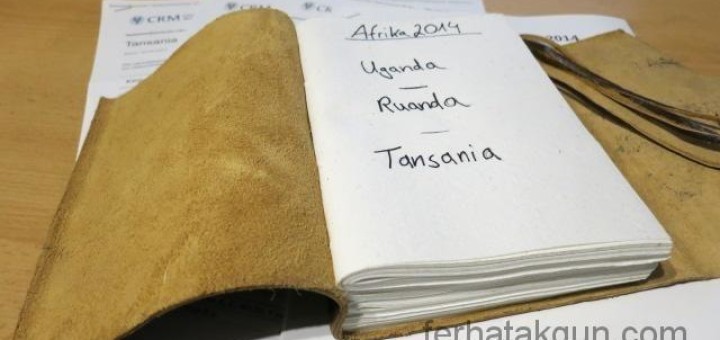 CRM
CRM
Tansania
2014
Afrika 2014
Uganda
Ruanda
Tansania
ferhatakgun.com